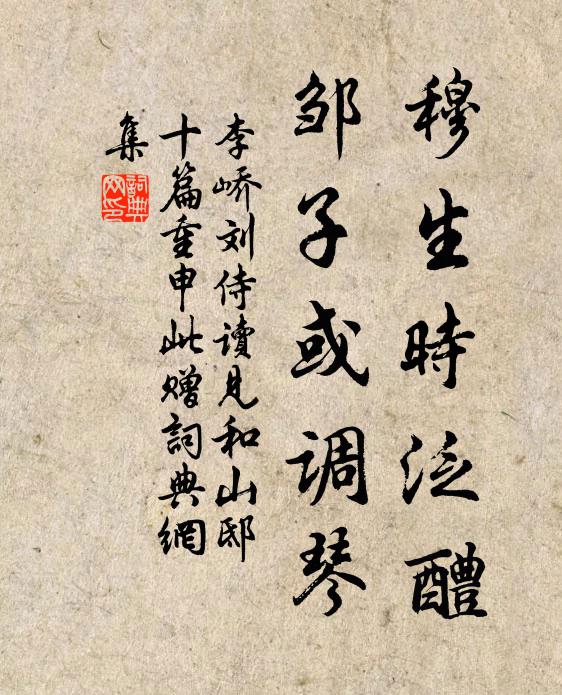 穆生時泛醴
邹子或调琴
李峤刘侍讀见和山邸
十篇重申此赠詞典網
集
詞典
网印